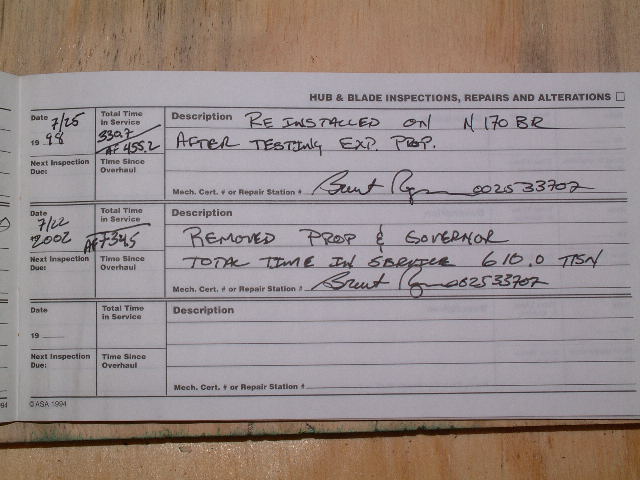 HUB & BLADE INSPECTIONS, REPAIRS AND ALTERATIONS
Date 7/25
19 98
Total Time in Service
330.7
AF 455.2
Description RE INSTALLED ON N170BR
AFTER TESTING EXP. PROP.
Next Inspection Due:
Time Since Overhaul
Mech. Cert. # or Repair Station # Brent 002533707
Date 7/22
2002
Total Time in Service
AF 734.5
Description
REMOVED PROP & GOVERNOR
TOTAL TIME IN SERVICE 610.0 TTSN
Next Inspection Due:
Time Since Overhaul
Mech. Cert. # or Repair Station # Brent 002533707
Date
19
Total Time in Service
Description
Next Inspection Due:
Time Since Overhaul
Mech. Cert. # or Repair Station #
94
© ASA 1994